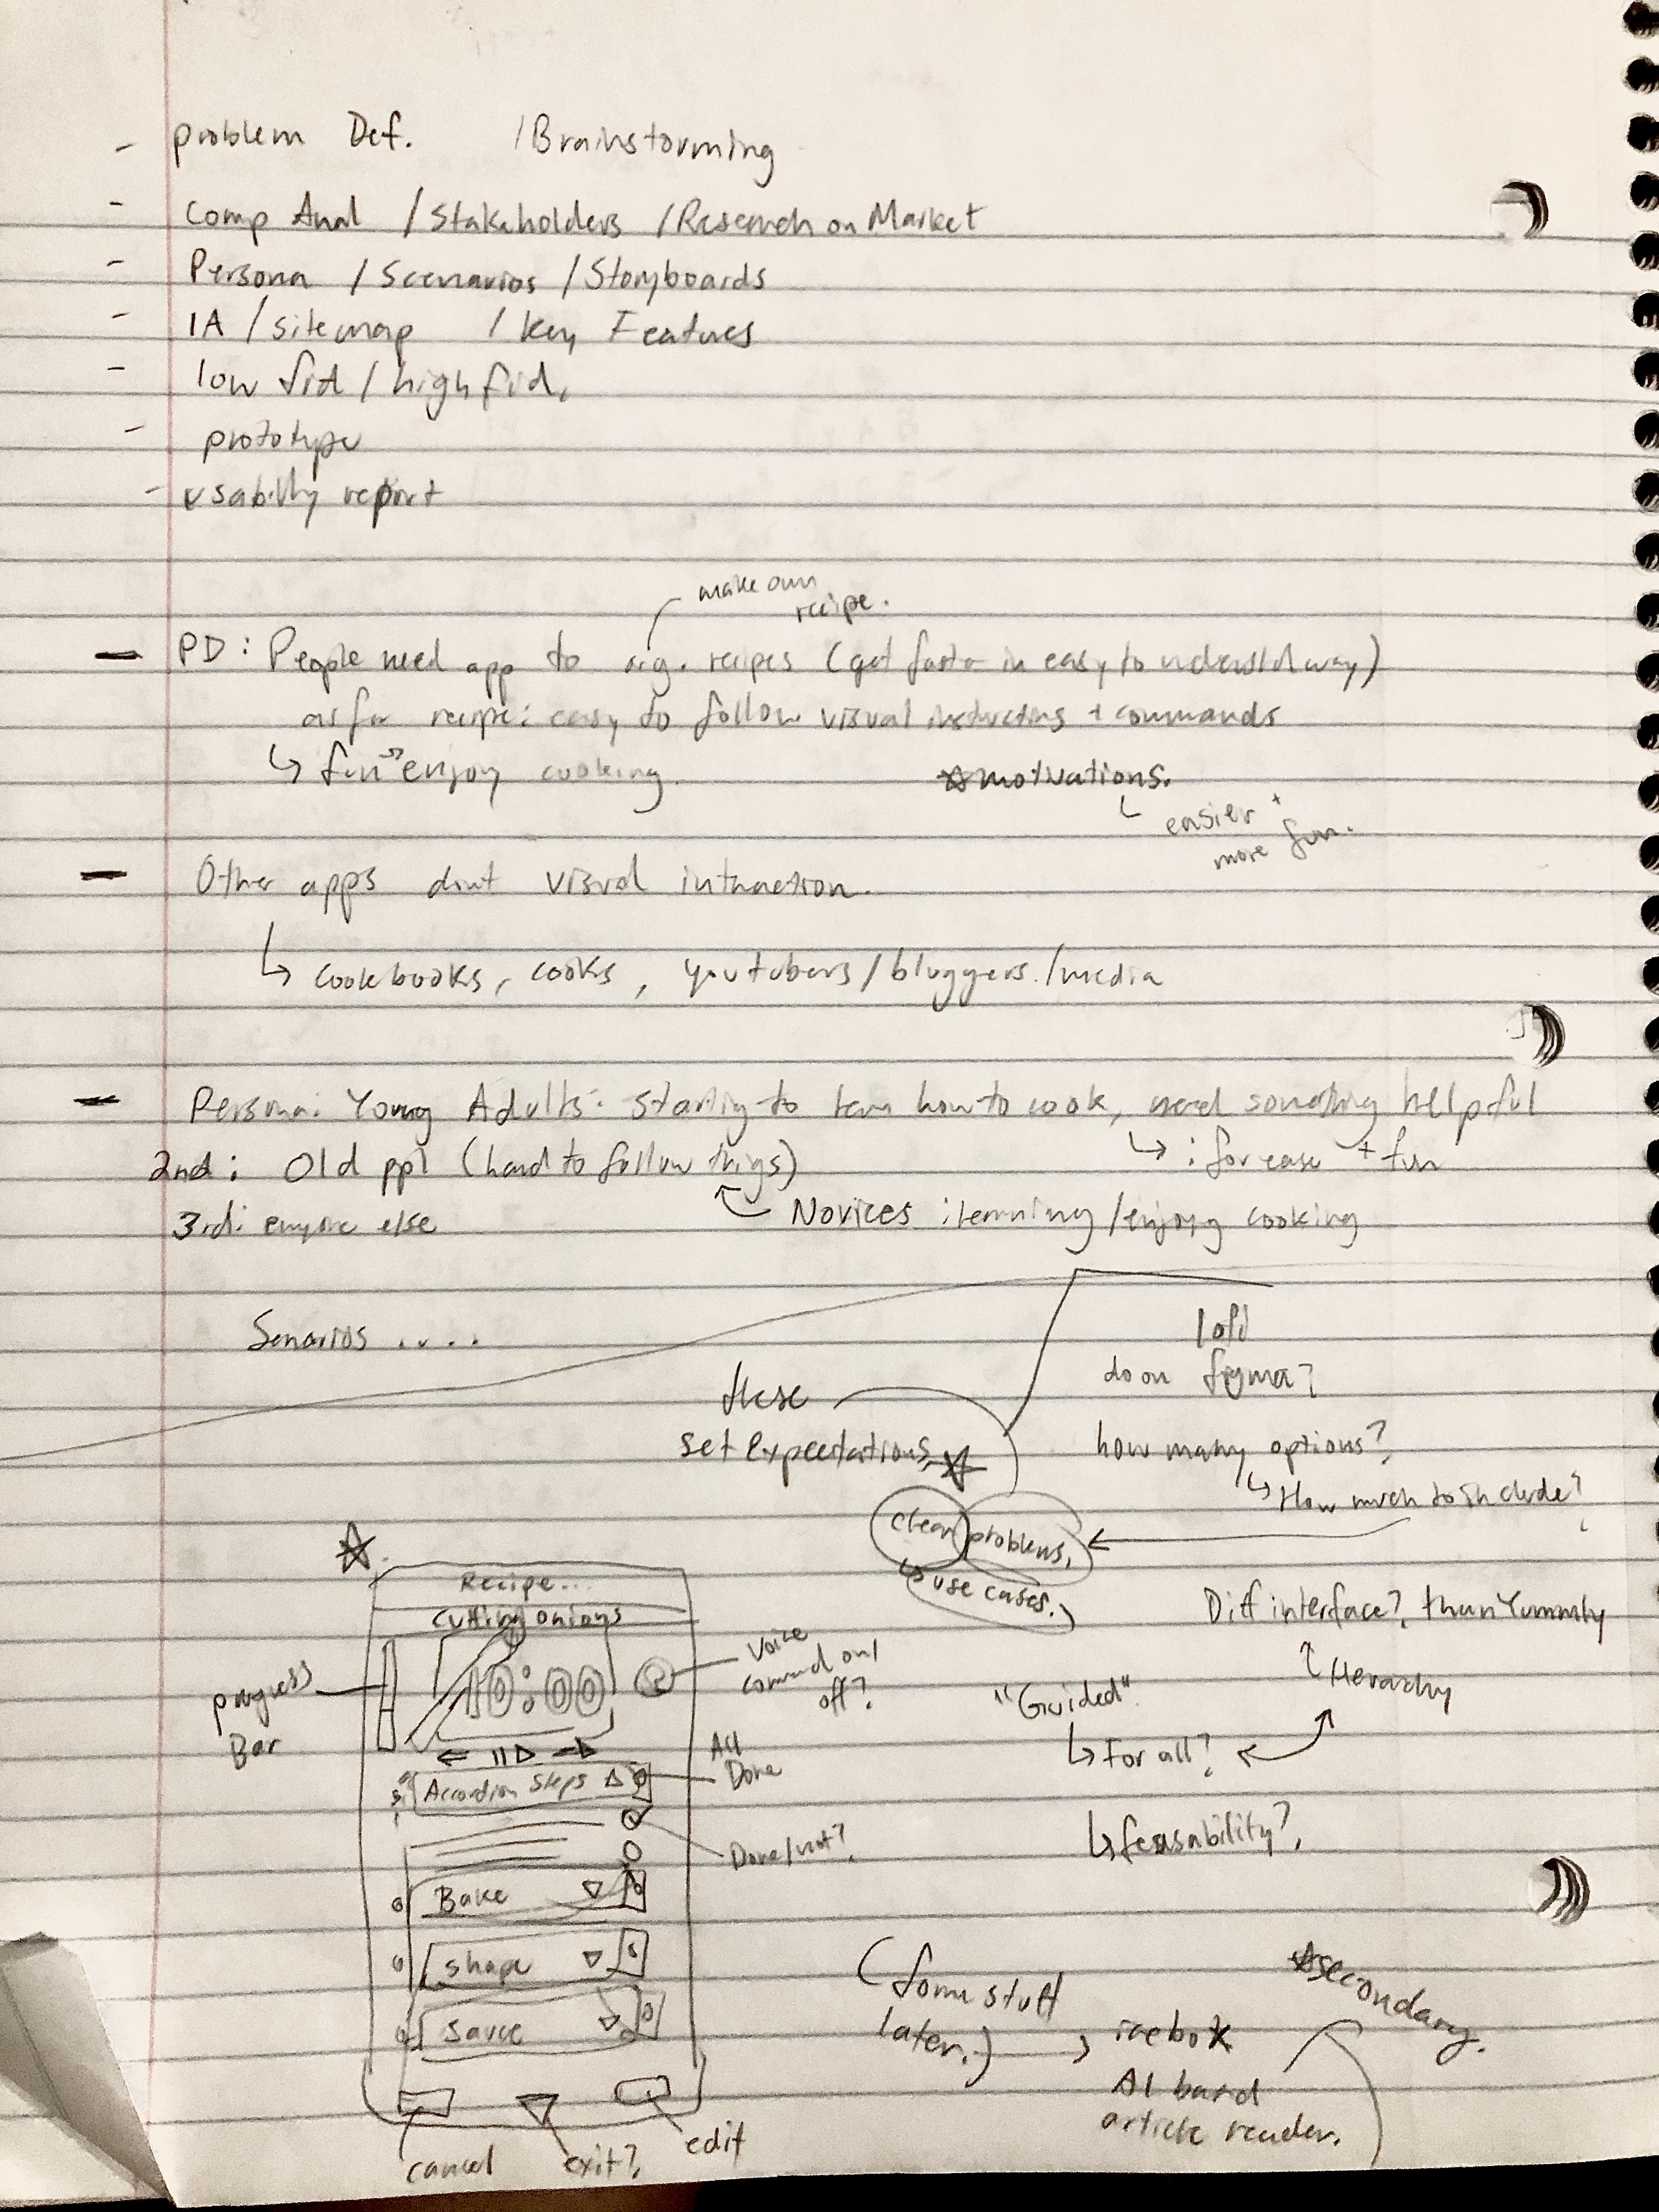 - problem Def. /Brainstorming
- Comp Anal /Stakeholders /Research on Market
- Persona /Scenarios /Storyboards
- IA /sitemap /key Features
- low fid / high fid.
- prototype
- usability report
make own
recipe.
- PD: People need app to org. recipes (got fast in easy to understd way)
as for recipe: easy to follow visual instructions + commands
↳ fun enjoy cooking.
☆motivations.
↳ easier +
more fun.
- Other apps dont visual interaction.
↳ cookbooks, cooks, youtubers/bloggers./media
- Persona: Young Adults: starting to learn how to cook, need something helpful
↳ : for ease + fun
2nd: Old ppl (hard to follow things)
Novices : learning /enjoy cooking
3rd: else
Senarios ....
lofi
do on figma?
these
set expectations ☆
how many options?
↳ How much to include?
clear problems,
↳ use cases.
Diff interface? than Yummly
↑ Hierarchy
"Guided"
↳ For all?
↳ feasability?
☆
Recipe...
Cutting onions
10:00
progress
Bar
Voice
command on/
off?
← II▷ →
Accordion Steps △
All
Done
Done/not?
Bake ▽
Shape ▽
Sauce ▽
cancel
exit?
edit
stuff
later.) → icebox
☆secondary.
AI based
article reader.